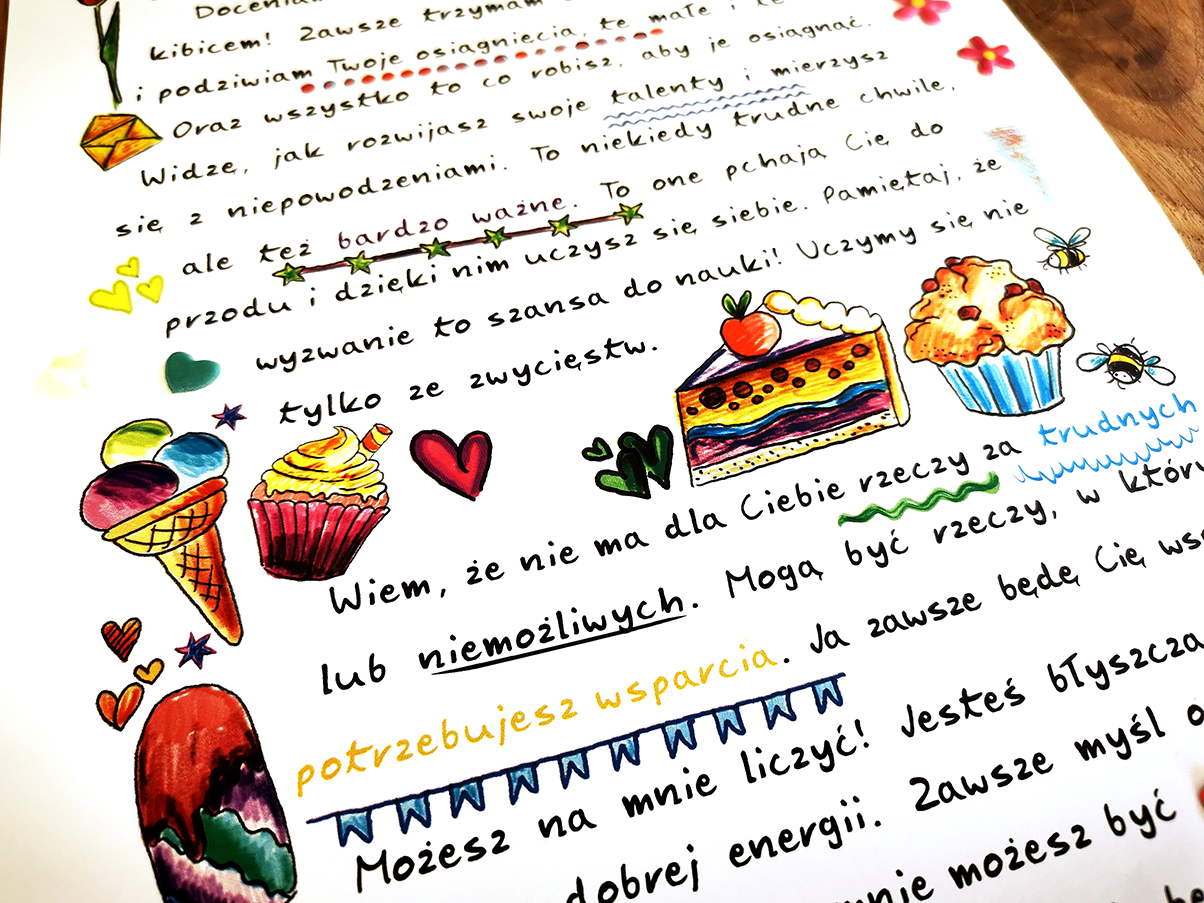 Doceniam
kibicem! Zawsze trzymam
i podziwiam Twoje osiągnięcia, te małe i te
Oraz wszystko to co robisz, aby je osiągnąć.
Widzę, jak rozwijasz swoje talenty i mierzysz
się z niepowodzeniami. To niekiedy trudne chwile,
ale też bardzo ważne. To one pchają Cię do
przodu i dzięki nim uczysz się siebie. Pamiętaj, że
wyzwanie to szansa do nauki! Uczymy się nie
tylko ze zwycięstw.
Wiem, że nie ma dla Ciebie rzeczy za trudnych
lub niemożliwych. Mogą być rzeczy, w któr
potrzebujesz wsparcia. Ja zawsze będę Cię wsp
Możesz na mnie liczyć! Jesteś błyszcza
dobrej energii. Zawsze myśl o
mnie możesz być